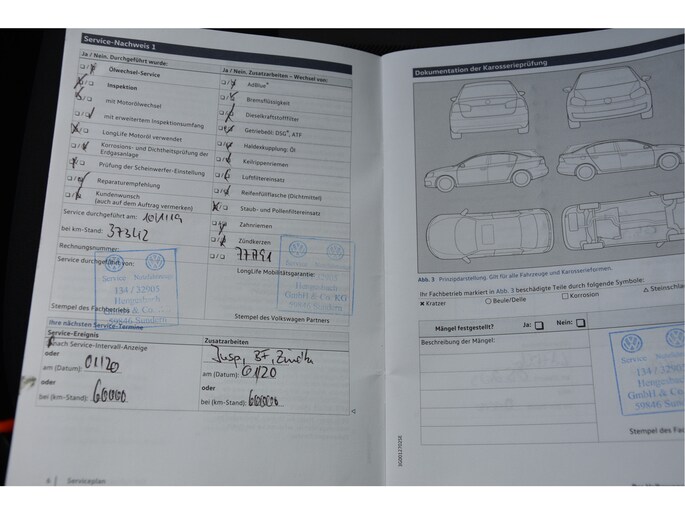 Service-Nachweis 1
Ja / Nein. Durchgeführt wurde:
Ölwechsel-Service
Inspektion
mit Motorölwechsel
mit erweitertem Inspektionsumfang
LongLife Motoröl verwendet
Korrosions- und Dichtheitsprüfung der
Erdgasanlage
Prüfung der Scheinwerfer-Einstellung
Reparaturempfehlung
Kundenwunsch
(auch auf dem Auftrag vermerken)
Service durchgeführt am: 10/1/19
bei km-Stand: 37342
Rechnungsnummer:
Service durchgeführt von:
Service
134 / 32905
Hengesbach
59846 Sundern
Stempel des Fachbetriebs
Ja / Nein. Zusatzarbeiten – Wechsel von:
AdBlue®
Bremsflüssigkeit
Dieselkraftstofffilter
Getriebeöl: DSG®, ATF
Haldexkupplung: Öl
Keilrippenriemen
Luftfiltereinsatz
Reifenfüllflasche (Dichtmittel)
Staub- und Pollenfiltereinsatz
Zahnriemen
Zündkerzen
77791
LongLife Mobilitätsgarantie:
Hengesbach
GmbH & Co. KG
59846 Sundern
Stempel des Volkswagen Partners
Ihre nächsten Service-Termine
Service-Ereignis
nach Service-Intervall-Anzeige
oder
am (Datum): 01/20
oder
bei (km-Stand): 60000
Zusatzarbeiten
Insp, BF,
am (Datum): 01/20
oder
bei (km-Stand): 60000
6 Serviceplan
Dokumentation der Karosserieprüfung
Abb. 3 Prinzipdarstellung. Gilt für alle Fahrzeuge und Karosserieformen.
Ihr Fachbetrieb markiert in Abb. 3 beschädigte Teile durch folgende Symbole:
x Kratzer
○ Beule/Delle
□ Korrosion
△ Steinschla
Mängel festgestellt? Ja: Nein:
Beschreibung der Mängel:
Service
134 / 32905
Hengesbach
GmbH & Co.
59846 Sundern
Stempel des Fac